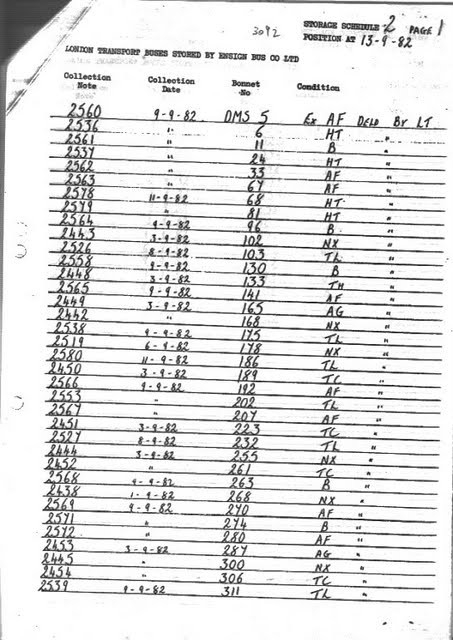 3092
STORAGE SCHEDULE 2 PAGE 1
POSITION AT 13-9-82
LONDON TRANSPORT BUSES STORED BY ENSIGN BUS CO LTD
Collection Note Collection Date Bonnet No Condition
2560 9-9-82 DMS 5 Ex AF DELD BY LT
2536 " 6 HT "
2561 " 11 B "
2537 " 24 HT "
2562 " 33 AF "
2563 " 67 AF "
2578 11-9-82 68 HT "
2579 " 81 HT "
2564 9-9-82 96 B "
2443 3-9-82 102 NX "
2526 8-9-82 103 TL "
2558 9-9-82 130 B "
2448 3-9-82 133 TH "
2565 9-9-82 141 AF "
2449 3-9-82 165 AG "
2442 " 168 NX "
2538 9-9-82 175 TL "
2519 6-9-82 178 NX "
2580 11-9-82 186 TL "
2450 3-9-82 189 TC "
2566 9-9-82 192 AF "
2553 " 202 TL "
2567 " 207 AF "
2451 3-9-82 223 TC "
2527 8-9-82 232 TL "
2444 3-9-82 255 NX "
2452 " 261 TC "
2568 9-9-82 263 B "
2438 1-9-82 268 NX "
2569 9-9-82 270 AF "
2571 " 274 B "
2572 " 280 AF "
2453 3-9-82 287 AG "
2445 " 300 NX "
2454 " 306 TC "
2539 9-9-82 311 TL "